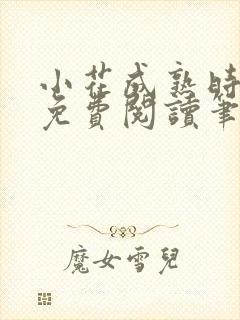 小茬成熟時
免費閱讀筆
魔女雪兒